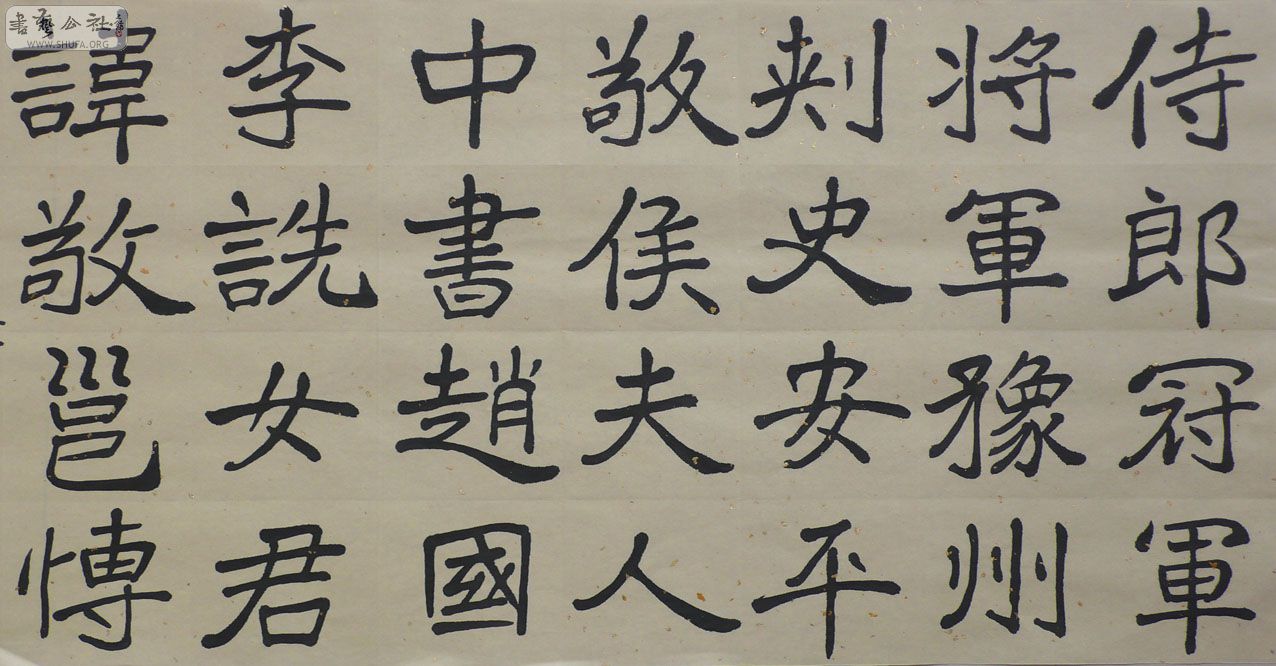 侍郎冠軍
将軍豫州
刾史安平
敬侯夫人
中書趙國
李詵女君
諱敬邕愽
書藝公社
WWW.SHUFA.ORG